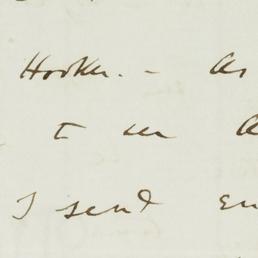 Hooker. – As
to see
I send